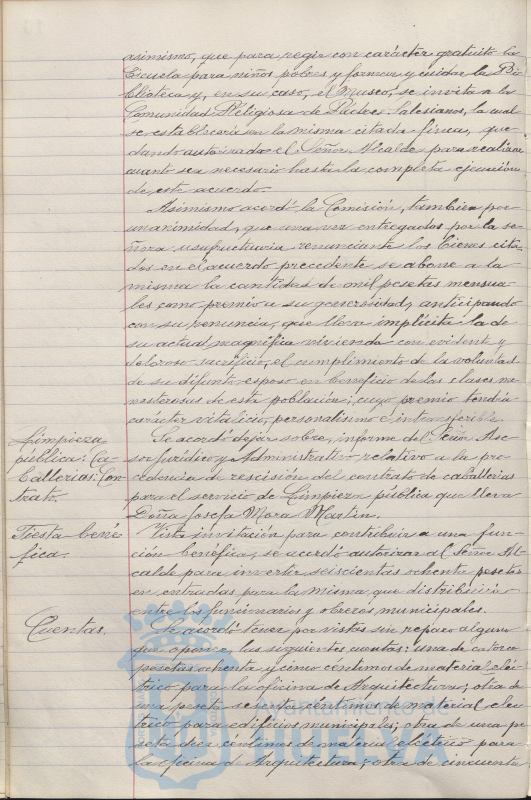 asimismo, que para regir con carácter gratuito la
Escuela para niños pobres y formar y cuidar la Bi-
blioteca y, en su caso, el Museo, se invita a la
Comunidad Religiosa de Padres Salesianos, la cual
se establecería en la misma citada finca, que-
dando autorizado el Señor Alcalde para realizar
cuanto sea necesario hasta la completa ejecución
de este acuerdo.
Asimismo acordó la Comisión, también por
unanimidad, que una vez entregados por la se-
ñora usufructuaria renunciante los bienes cita-
dos en el acuerdo precedente se abone a la
misma la cantidad de mil pesetas mensua-
les como premio a su generosidad, anticipando
con su renuncia, que lleva implícita la de
su actual magnífica vivienda con evidente y
doloroso sacrificio, el cumplimiento de la voluntad
de su difunto esposo en beneficio de las clases me-
nesterosas de esta población; cuyo premio tendría
carácter vitalicio, personalísimo e intransferible.
Limpieza
pública: Ca-
ballerías: Con-
trato.
Se acordó dejar sobre, informe del Señor Ase-
sor Jurídico y Administrativo relativo a la pro-
cedencia de rescisión del contrato de caballerías
para el servicio de Limpieza pública que lleva
Doña Josefa Mora Martín.
Fiesta bené-
fica.
Vista invitación para contribuir a una fun-
ción benéfica, se acordó autorizar al Señor Al-
calde para invertir seiscientas ochenta pesetas
en entradas para la misma, que distribuirá
entre los funcionarios y obreros municipales.
Cuentas.
Se acordó tener por vistas sin reparo alguno
que oponer, las siguientes cuentas: una de catorce
pesetas ochenta y cinco céntimos de material eléc-
trico para la oficina de Arquitectura; otra de
una peseta sesenta céntimos de material eléc-
trico para edificios municipales; otra de una pe-
seta diez céntimos de material eléctrico para
la oficina de Arquitectura; otra de cincuenta